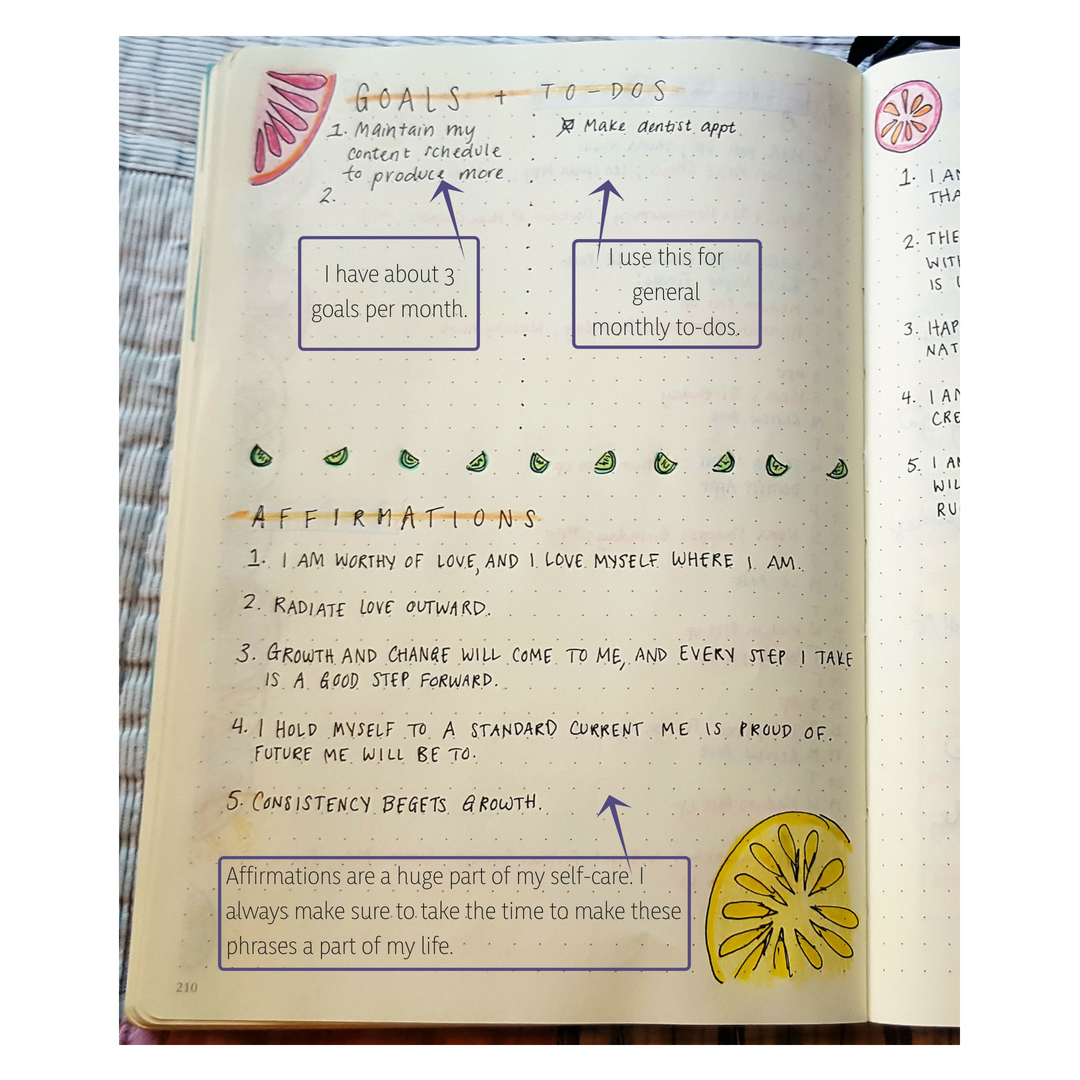 GOALS + TO-DOS
1. Maintain my
content schedule
to produce more
2.
Make dentist appt
I have about 3
goals per month.
I use this for
general
monthly to-dos.
AFFIRMATIONS
1. I AM WORTHY OF LOVE, AND I LOVE MYSELF WHERE I AM.
2. RADIATE LOVE OUTWARD.
3. GROWTH AND CHANGE WILL COME TO ME, AND EVERY STEP I TAKE
IS A GOOD STEP FORWARD.
4. I HOLD MYSELF TO A STANDARD CURRENT ME IS PROUD OF.
FUTURE ME WILL BE TO.
5. CONSISTENCY BEGETS GROWTH.
Affirmations are a huge part of my self-care. I
always make sure to take the time to make these
phrases a part of my life.
210
1. I AM
THA
2. THE
WITH
IS
3. HAP
NAT
4. I AM
CRE
5. I AM
WIL
RU